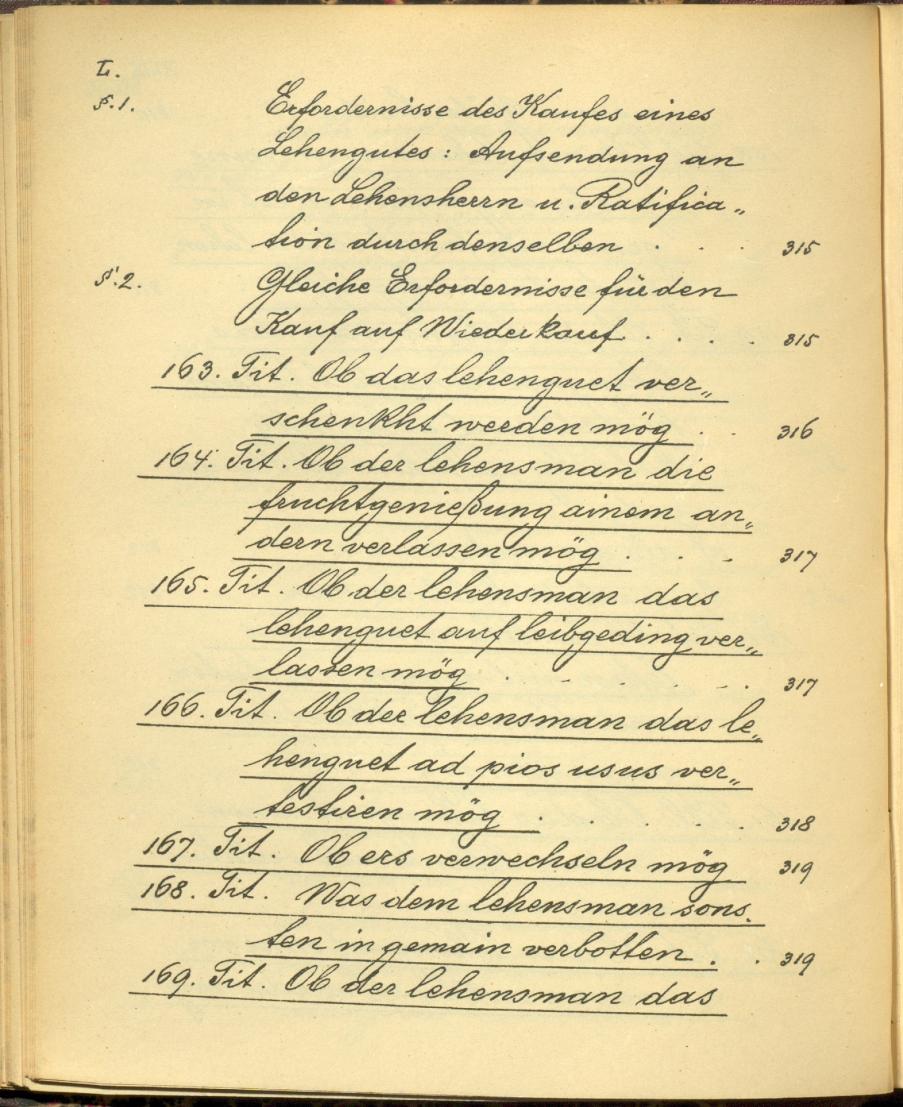 L.
§.1. Erfordernisse des Kaufes eines
Lehengutes: Aufsendung an
den Lehensherrn u. Ratifica„
tion durch denselben . . . 315
§.2. Gleiche Erfordernisse für den
Kauf auf Wiederkauf . . . . 315
163. Tit. Ob das lehenguet ver„
schenkht werden mög . . 316
164. Tit. Ob der lehensman die
fruchtgenießung ainem an„
dern verlassen mög . . . 317
165. Tit. Ob der lehensman das
lehenguet auf leibgeding ver„
lassen mög . . . . . . 317
166. Tit. Ob der lehensman das le„
henguet ad pios usus ver„
testiren mög . . . . . 318
167. Tit. Ob ers verwechseln mög 319
168. Tit. Was dem lehensman sons„
ten in gemain verbotten . . 319
169. Tit. Ob der lehensman das